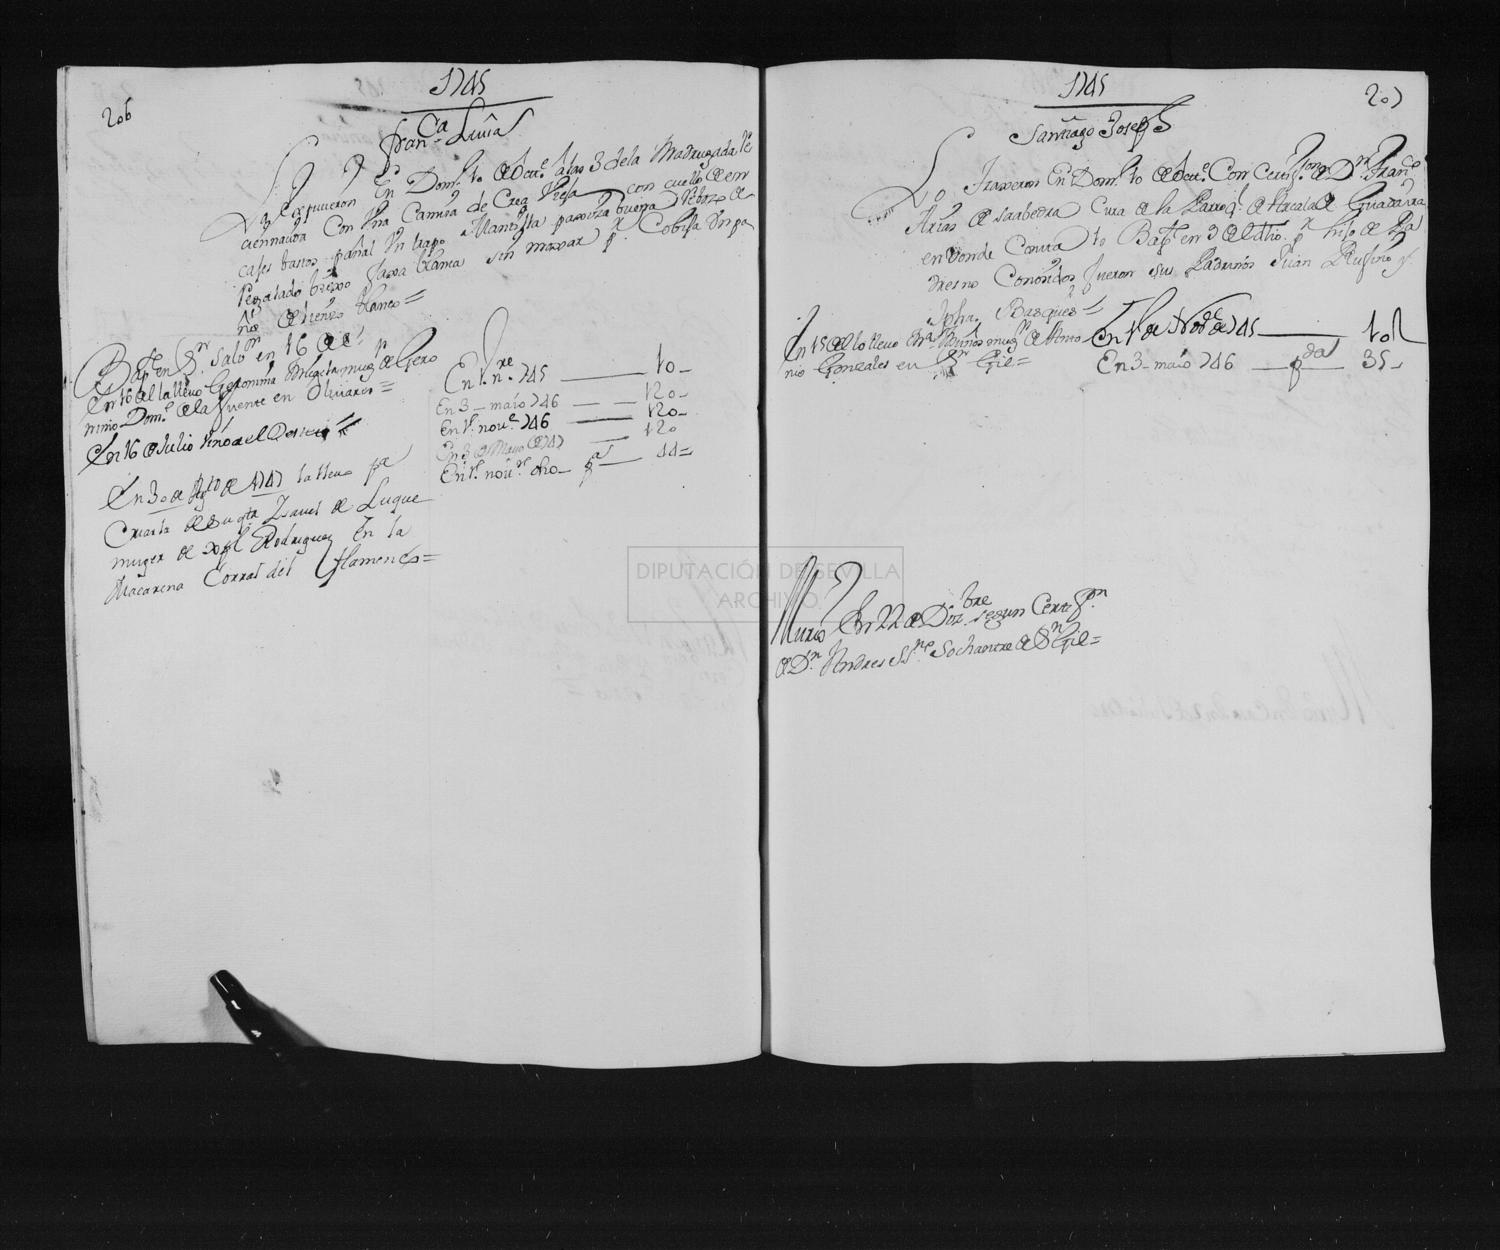 206
1745
Fran.ca Luuisa
La expusieron En Dom.o 10 de Octu.e a las 3 de la Madrugada re
cien nauda Con Una Camisa de Crea Vieja con cuello de en
cajes bastos pañal Un trapo Mantilla pañiza buena Reboso de
Pecalado bueno faxa blanca sin marcar p.r Cobija Un pa
ño de lienzo blanco =
Bap.da en S.n Salb.or en 16 de
En 16 de la lleuo Geronima muger de Gero
nimo Dom.o de la fuente en Oliuares =
En 16 de Julio vino del
En 30 de Ag.to de 1747 la lleuo p.a
Criarla de su q.ta Isauel de Luque
muger de Xp.l Rodriguez En la
Macarena Corral del flamenco =
En 1.o n.re 745 — 10-
En 3 - maio 746 — 120-
En 1.o nou.e 746 — 120-
En 3 de Maio de 747 — 120
En 1.o nou.e dho — p.a — 44=
1745
207
Santiago Joseph
Lo Traxeron En Dom.o 10 de Octu.e Con Certif.on de D.n Fran.co
Arias de Saabedra Cura de la Parroq.l de Alcala de Guadaira
en donde Consta lo Bap.e en 3 de dho. p.r hijo de Pa
dres no Conosidos fueron sus Padrinos Juan Rufino y
Jpha. Basques =
En 15 de lo lleuo muger de Anto
nio Gonzales en S.n Gil=
En 1.o de Nob.e de 745 — 10
En 3 - maio 746 — p.da — 35-
Murio En 22 de Diz.bre segun Certif.on
de D.n Andres Sochantre de S.n Gil=
DIPUTACIÓN DE SEVILLA
ARCHIVO